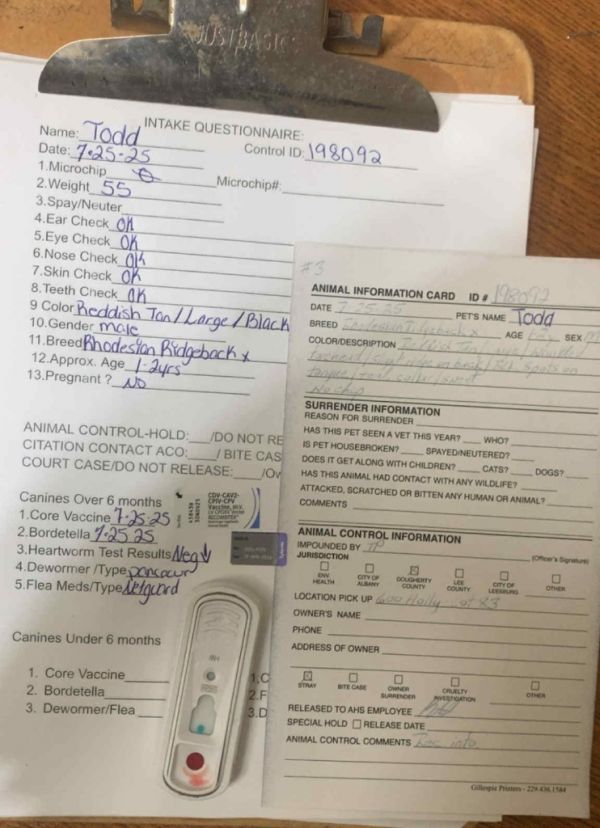 JUSTBASICS
INTAKE QUESTIONNAIRE:
Name: Todd Control ID: 198092
Date: 7-25-25
1.Microchip Microchip#:
2.Weight 55
3.Spay/Neuter
4.Ear Check OK
5.Eye Check OK
6.Nose Check OK
7.Skin Check OK
8.Teeth Check OK
9 Color Reddish Tan/Large/Black
10.Gender male
11.Breed Rhodesian Ridgeback x
12.Approx. Age 1-2yrs
13.Pregnant ? NO
ANIMAL CONTROL-HOLD: /DO NOT RE
CITATION CONTACT ACO: / BITE CAS
COURT CASE/DO NOT RELEASE: /Ow
Canines Over 6 months
1.Core Vaccine 7-25-25
2.Bordetella 7-25-25
3.Heartworm Test Results Neg
4.Dewormer /Type panacur
5.Flea Meds/Type Nexguard
CDV-CAV2-
CPIV-CPV
Canines Under 6 months
1. Core Vaccine
2. Bordetella
3. Dewormer/Flea
1.C
2.F
3.D
#3
ANIMAL INFORMATION CARD ID # 198092
DATE 7-25-25 PET'S NAME Todd
BREED Rhodesian Ridgeback x AGE SEX M
COLOR/DESCRIPTION
spots on
No chip
SURRENDER INFORMATION
REASON FOR SURRENDER
HAS THIS PET SEEN A VET THIS YEAR? WHO?
IS PET HOUSEBROKEN? SPAYED/NEUTERED?
DOES IT GET ALONG WITH CHILDREN? CATS? DOGS?
HAS THIS ANIMAL HAD CONTACT WITH ANY WILDLIFE?
ATTACKED, SCRATCHED OR BITTEN ANY HUMAN OR ANIMAL?
COMMENTS
ANIMAL CONTROL INFORMATION
IMPOUNDED BY JP
(Officer's Signature)
JURISDICTION
ENV. HEALTH CITY OF ALBANY DOUGHERTY COUNTY LEE COUNTY CITY OF LEESBURG OTHER
LOCATION PICK UP 600 Holly Lot 83
OWNER'S NAME
PHONE
ADDRESS OF OWNER
STRAY BITE CASE OWNER SURRENDER CRUELTY INVESTIGATION OTHER
RELEASED TO AHS EMPLOYEE
SPECIAL HOLD RELEASE DATE
ANIMAL CONTROL COMMENTS
Gillespie Printers - 229.436.1584